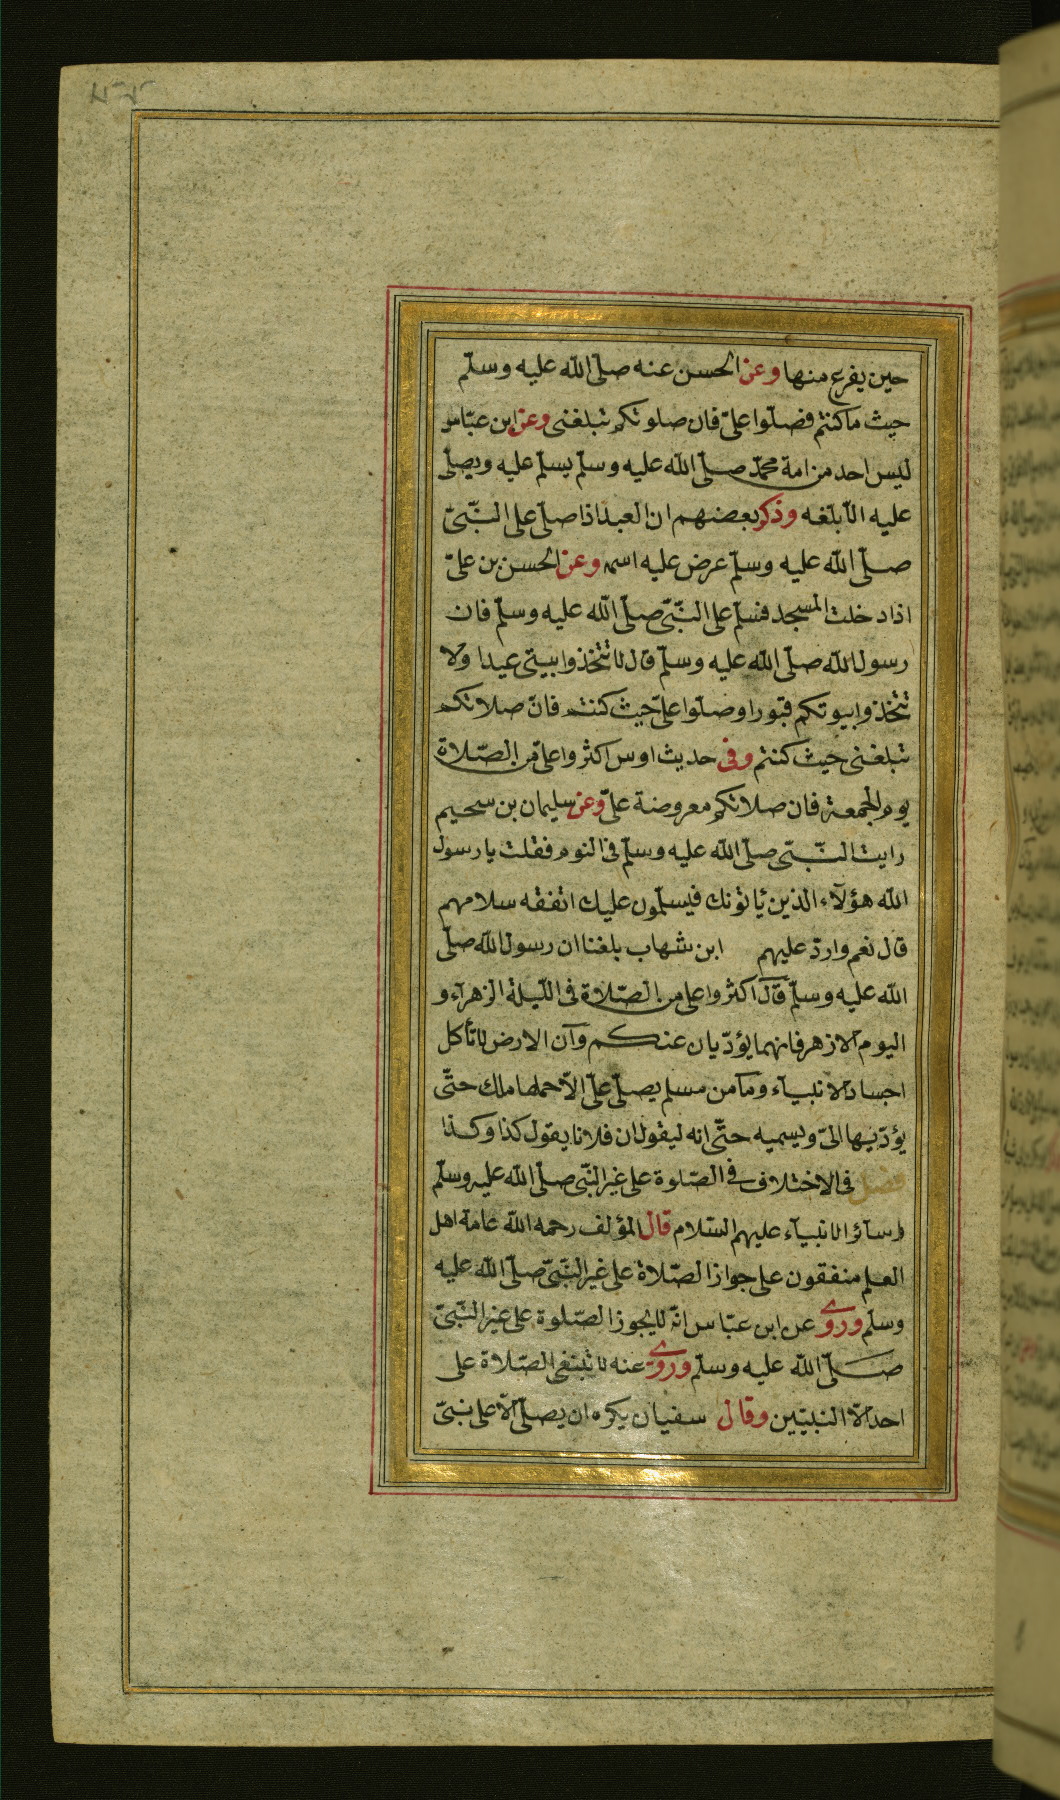 حين يفرغ منها وعن الحسن عنه صلّى الله عليه وسلّم
حيث ما كنتم فصلّوا علىّ فان صلوتكم تبلغنى وعن ابن عبّاس
ليس احد من امة محمّد صلّى الله عليه وسلّم يسلّم عليه ويصلّى
عليه الّا بلّغه وذكر بعضهم ان العبد اذا صلّى على النّبىّ
صلّى الله عليه وسلّم عرض عليه اسمه وعن الحسن بن علىّ
اذا دخلت المسجد فسلّم على النّبىّ صلّى الله عليه وسلّم فان
رسول الله صلّى الله عليه وسلّم قال لا تتّخذوا بيتى عيدا ولا
تتّخذوا بيوتكم قبورا وصلّوا علىّ حيث كنتم فانّ صلاتكم
تبلغنى حيث كنتم وفى حديث اوس اكثروا علىّ من الصّلاة
يوم الجمعة فان صلاتكم معروضة علىّ وعن سليمان بن سحيم
رايت النّبىّ صلّى الله عليه وسلّم فى النوم فقلت يا رسول
الله هؤلآء الذين يأتونك فيسلّمون عليك اتفقه سلامهم
قال نعم واردّ عليهم ابن شهاب بلغنا ان رسول الله صلّى
الله عليه وسلّم قال اكثروا على من الصّلاة فى اللّيلة الزهرآء و
اليوم الازهر فانهما يؤدّيان عنكم وآن الارض لا تأكل
اجساد الانبيآء وما من مسلم يصلّى علىّ الّا حملها ملك حتّى
يؤدّيها الىّ ويسميه حتّى انه ليقول ان فلانا يقول كذا وكذا
فصل فى الاختلاف فى الصّلوة على غير النّبى صلّى الله عليه وسلّم
وسائر الانبيآء عليهم السّلام قال المؤلف رحمه الله عامة اهل
العلم متفقون على جواز الصّلاة على غير النّبىّ صلّى الله عليه
وسلّم وروى عن ابن عبّاس انّه لا يجوز الصّلوة على غير النّبىّ
صلّى الله عليه وسلّم وروى عنه لا تبتغى الصّلاة على
احد الّا النبيّين وقال سفيان يكره ان يصلّى الّا على نبىّ